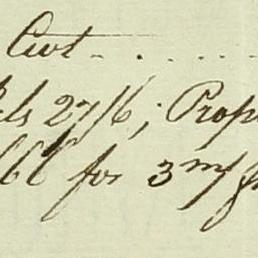 Cwt - . . . .
ls 27/6; Prop
bbl for 3 m/